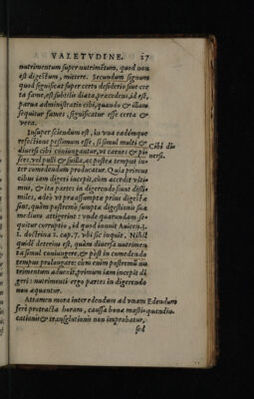 VALETVDINE. 27
nutrimentum super nutrimētum, quod non
est digestum, mittere. Secundum signum
quod significat super certo desiderio siue cer
ta fame, est subtilis diæta, præcedens, id est,
parua administratio cibi, quando & illam
sequitur fames, significatur esse certa &
vera.
Insuper sciendum est, in vna eadémque
refectione pessimum esse, si simul multi &
diuersi cibi coniungantur, vt carnes & pis
Cibi di
uersi.
ces, vel pulli & similia, ac postea tempus in-
ter comedendum producatur. Quia primus
cibus iam digeri incepit, cùm accedit vlti-
mus, & ita partes in digerendo sunt dissi-
miles, adeò vt præassumpta prius digesta
sint, quàm postremò sumpta digestionis suæ
medium attigerint: vnde quarundam se-
quitur corruptio, id quod innuit Auicen. 3.
1. doctrina 2. cap. 7. vbi sic inquit. Nihil
quidē deterius est, quàm diuersa nutrimen
ta simul coniungere, & pòst in comedendo
tempus prolongare: cùm enim postremū nu
trimentum aduenit, primum iam incepit di
geri: nutrimenti ergo partes in digerendo
non æquantur.
Attamen mora inter edendum ad vnam
Edendum
ferè protracta horam, caussa bonæ masti-
quandiu.
cationis & transglutionis non improbatur,
sed